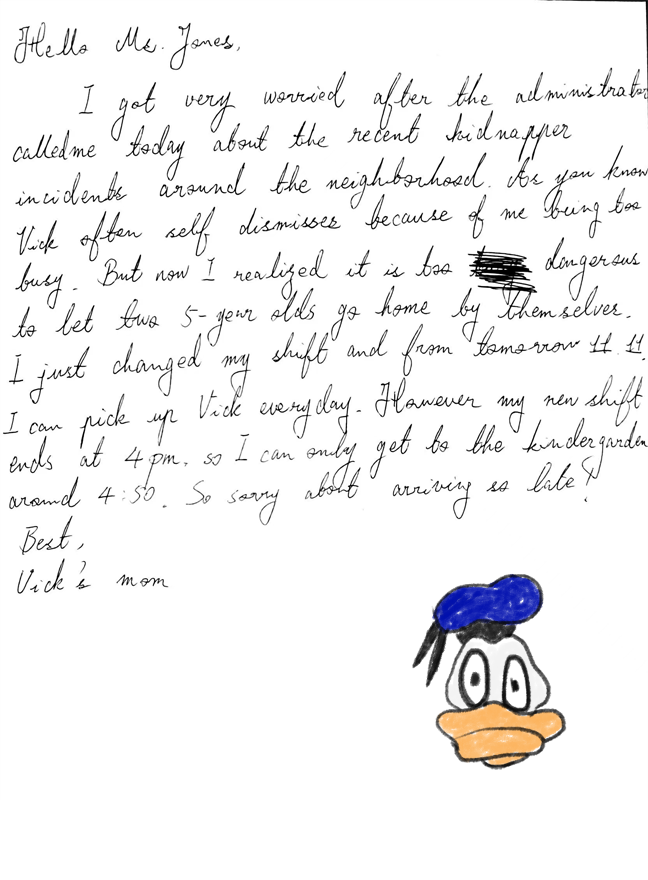 Hello Ms. Jones,
I got very worried after the administrator
calledme today about the recent kidnapper
incidents around the neighborhood. As you know
Vick often self dismisses because of me being too
busy. But now I realized it is too dangerous
to let two 5-year olds go home by themselves.
I just changed my shift and from tomorrow 11.11.
I can pick up Vick everyday. However my new shift
ends at 4pm. so I can only get to the kindergarden
around 4:50. So sorry about arriving so late!
Best,
Vick's mom